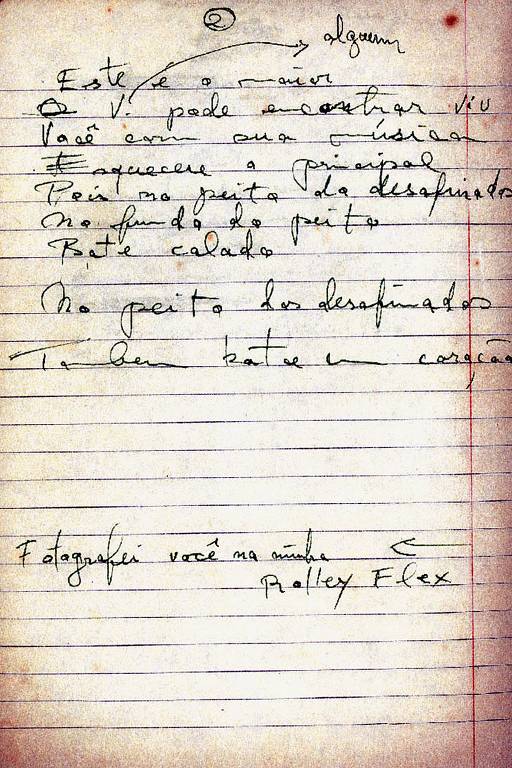 2
alguem
Este é o maior
O V. pode encontrar viu
Você com sua música
Esqueceu o principal
Pois no peito do desafinados
No fundo do peito
Bate calado
No peito dos desafinados
Tambem bate um coração
Fotografei você na minha
Rolley Flex